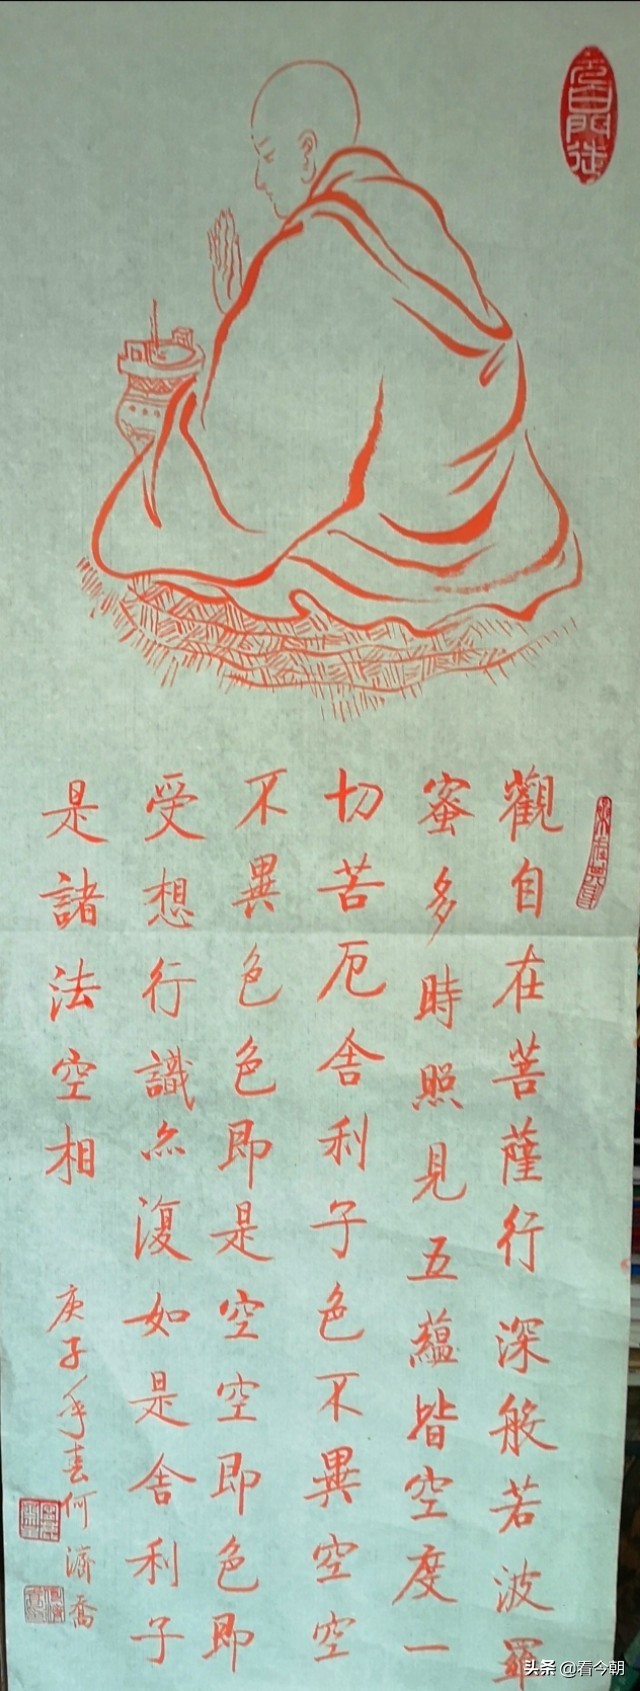 觀自在菩薩行深般若波羅
蜜多時照見五蘊皆空度一
切苦厄舍利子色不異空空
不異色色即是空空即色即
受想行識亦復如是舍利子
是諸法空相
庚子年春何濟喬
头条 @看今朝